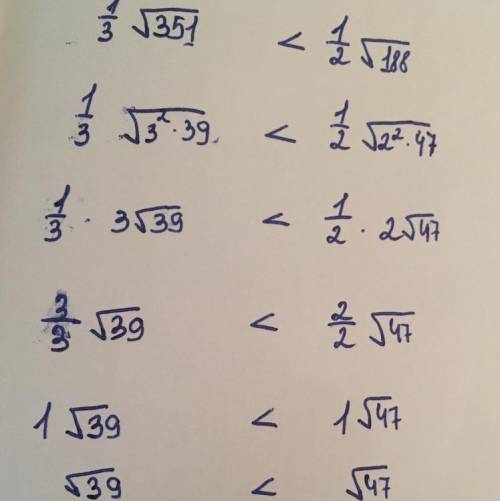 1/3 √351 < 1/2 √188
1/3 √3²·39 < 1/2 √2²·47
1/3 · 3√39 < 1/2 · 2√47
3/3 √39 < 2/2 √47
1 √39 < 1√47
√39 < √47